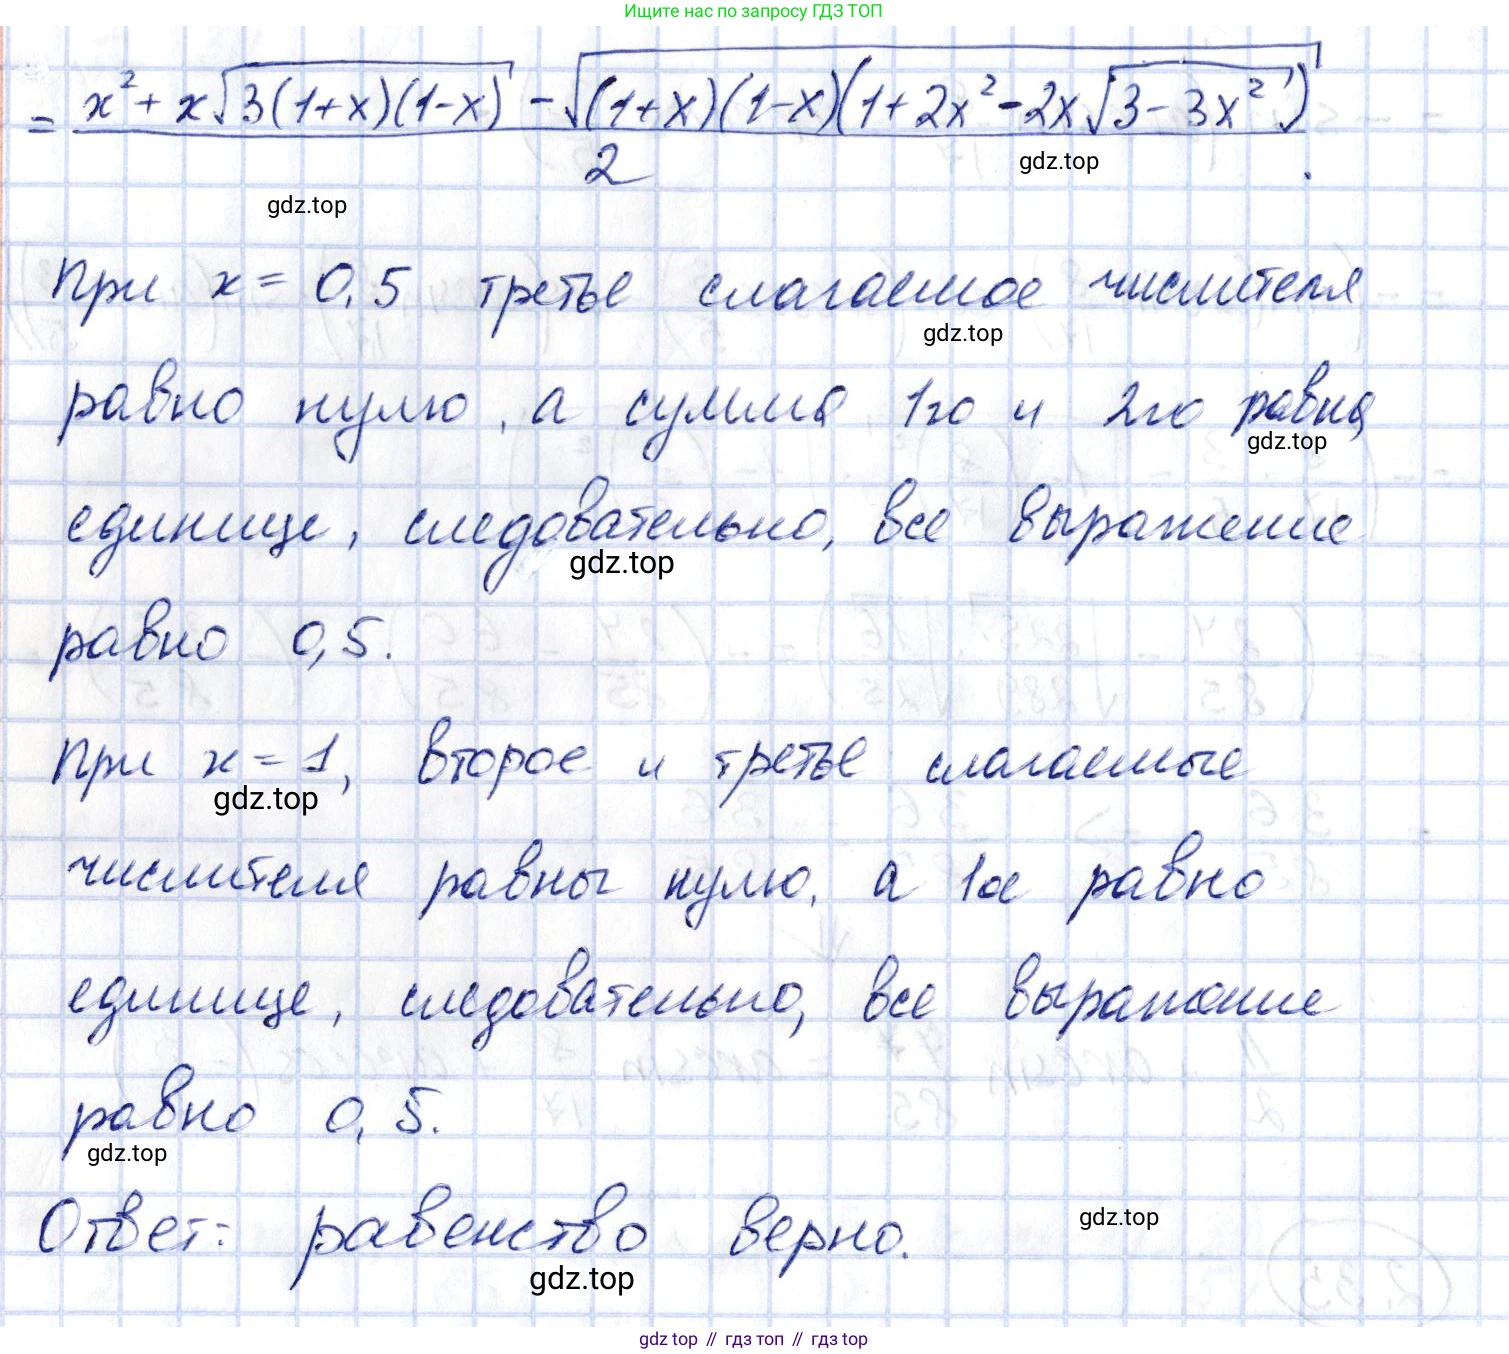 Ищите нас по запросу ГДЗ ТОП
= (x² + x√(3(1+x)(1-x)) - √((1+x)(1-x)(1+2x²-2x√(3-3x²)))) / 2 .
gdz.top
gdz.top
При x = 0,5 третье слагаемое числителя
gdz.top
равно нулю, а сумма 1го и 2го равна
gdz.top
единице, следовательно, все выражение
gdz.top
равно 0,5.
При x = 1, второе и третье слагаемые
gdz.top
числителя равны нулю, а 1ое равно
единице, следовательно, все выражение
равно 0,5.
gdz.top
Ответ: равенство верно.
gdz.top
gdz.top
gdz top // гдз топ // гдз top